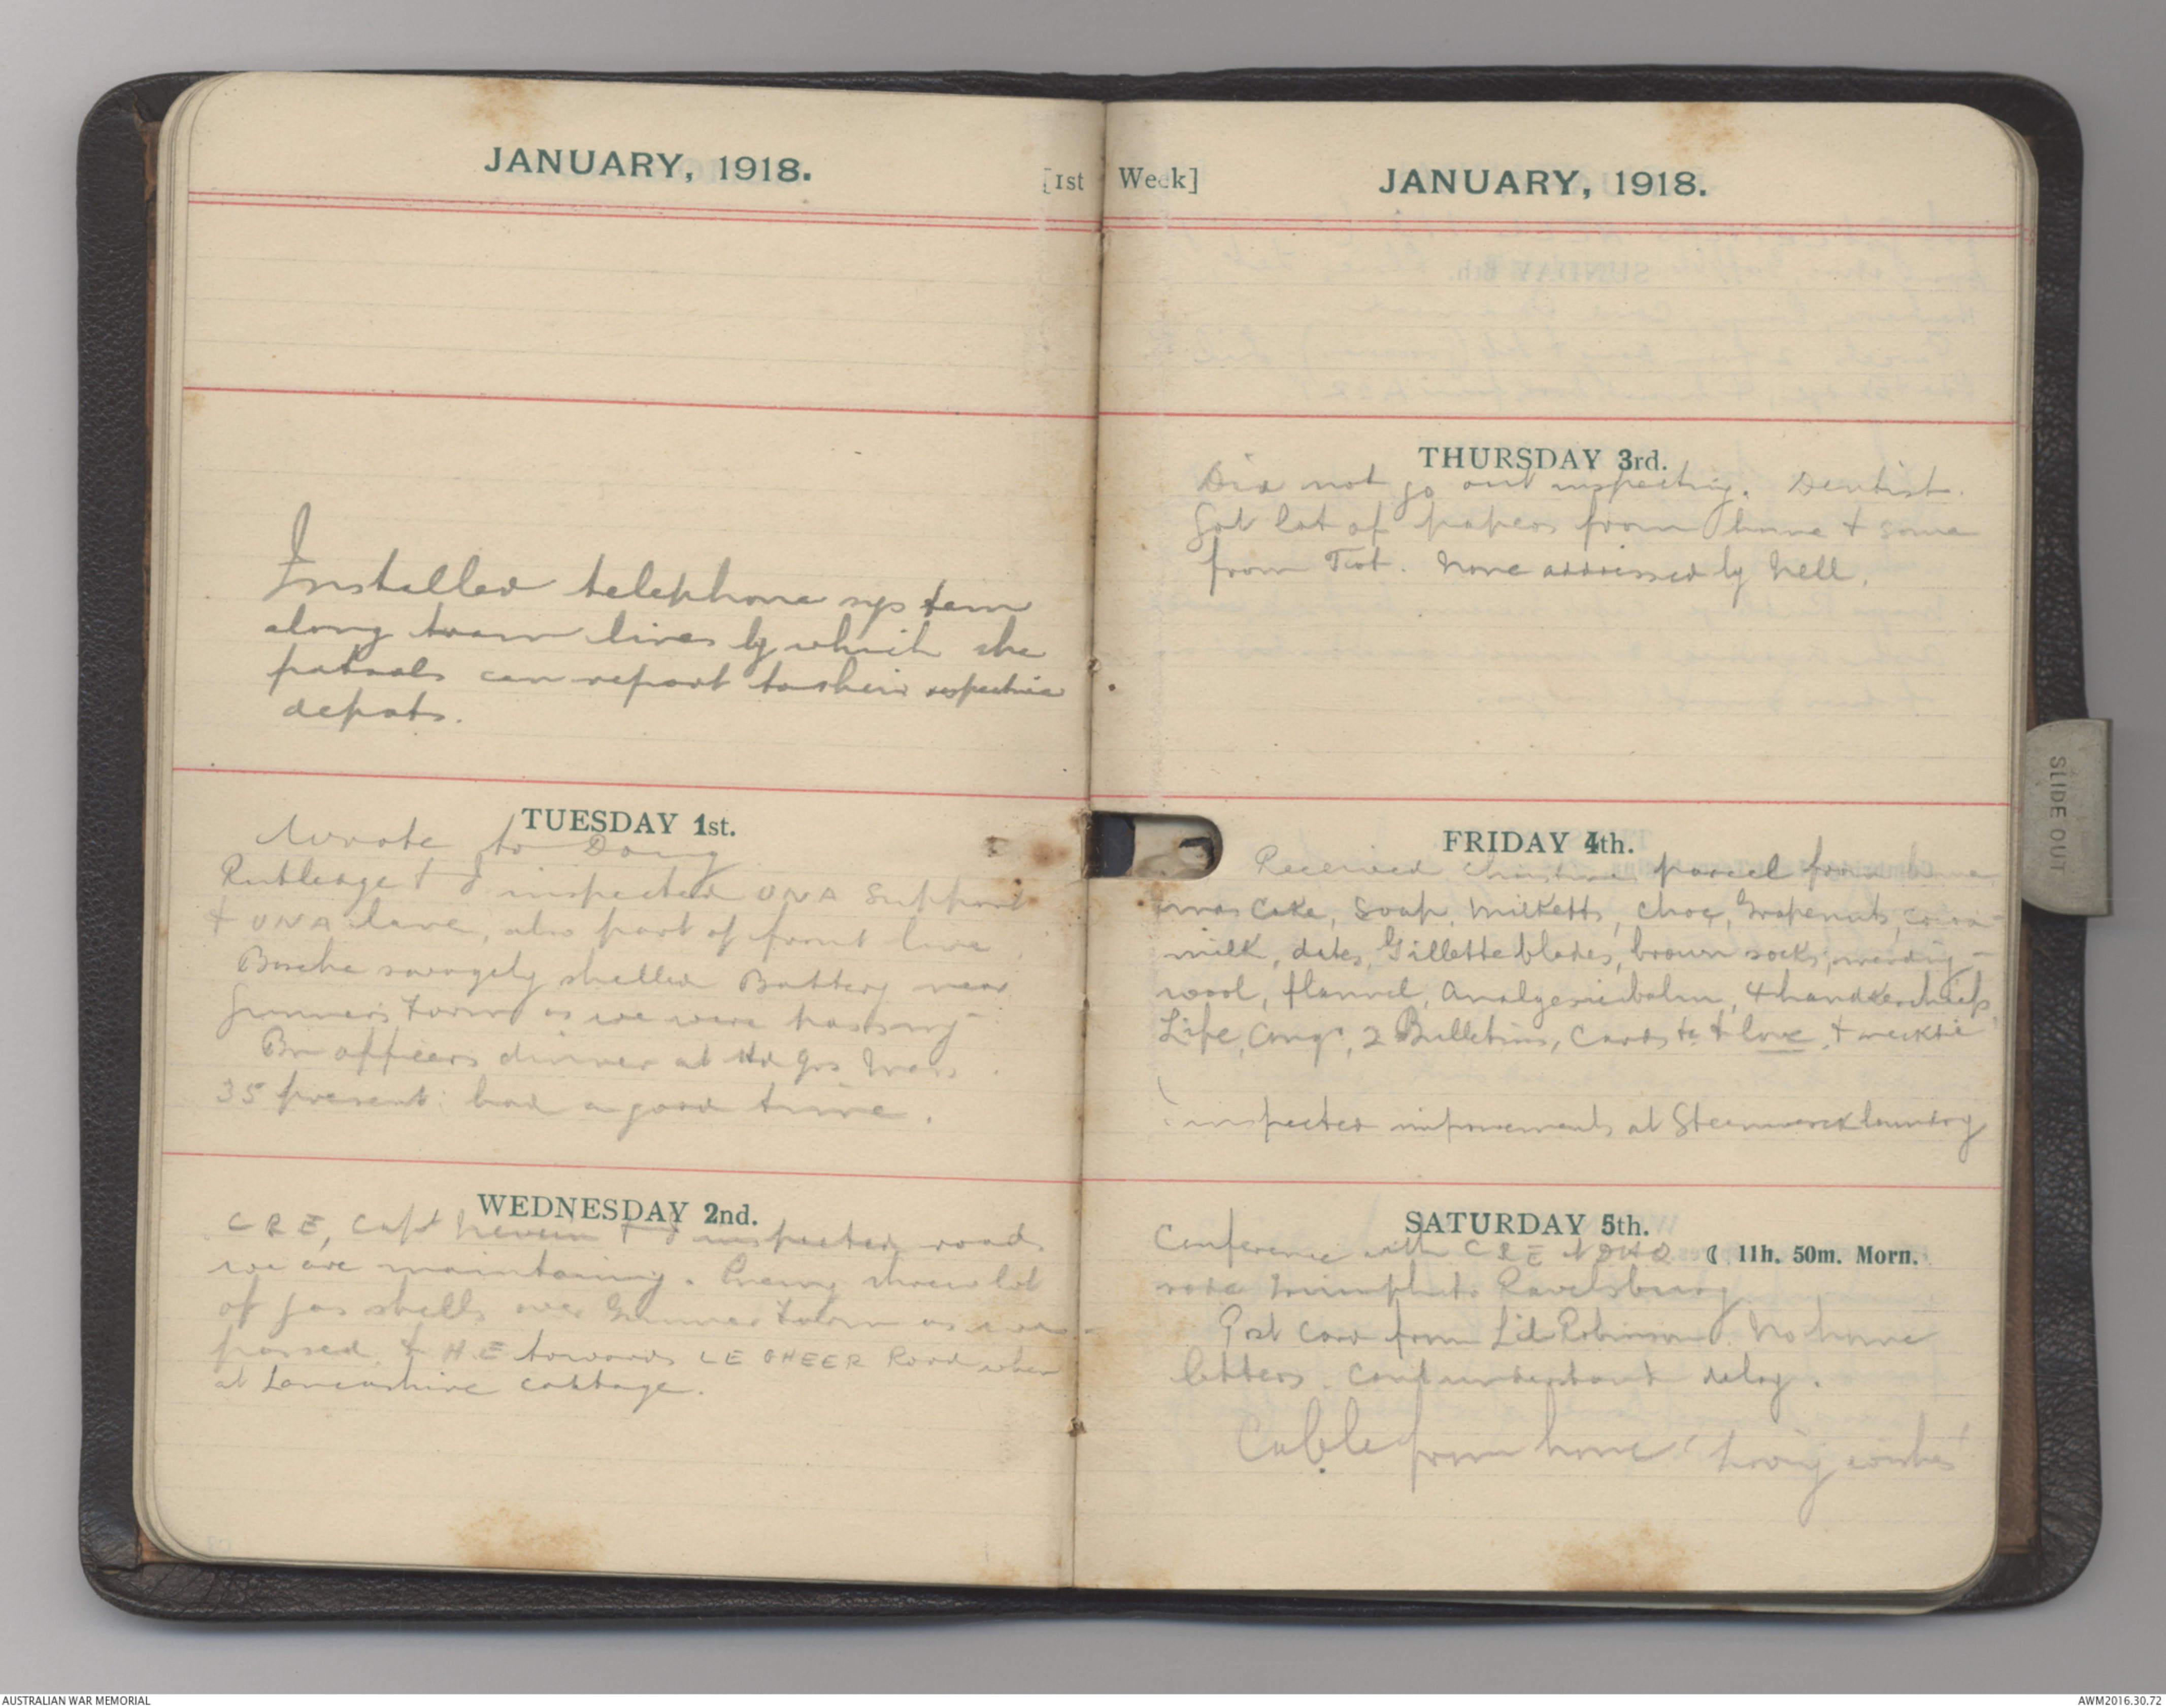 JANUARY, 1918.
[1st
Installed telephone system
along tram lines by which the
patrols can report to their respective
depots.
TUESDAY 1st.
Wrote to Doug
Rutledge & I inspected UNA Support
& UNA lane, also part of front line
Bosche savagely shelled Battery near
Gunners Farm as we were passing
Bn officers dinner at Hd Qrs Mess.
35 present: had a good time.
WEDNESDAY 2nd.
CRE, Capt & I inspected roads
we are maintaining. Enemy threw lot
of gas shells over Gunner Farm as we
passed, & HE towards LE GHEER Road when
at Lancashire cottage.
Week]
JANUARY, 1918.
THURSDAY 3rd.
Did not go out inspecting. Dentist.
Got lot of papers from home & some
from Tot. None addressed by Nell.
FRIDAY 4th.
Received Christmas parcel from
mas Cake, Soap, Milketts, choc, Grapenuts, cocoa
milk, dates, Gillette blades, brown socks, mending-
wool, flannel, Analgesic balm, 4 handkerchiefs,
Life, , 2 Bulletins, Cards etc & love, & necktie
inspected improvements at Steenwerck laundry
SATURDAY 5th.
Conference with CRE at DHQ
☾ 11h. 50m. Morn.
rode to Ravelsburg
Post card from Lil Robinson. No home
letters. Cant understand delay.
Cable from home 'loving wishes'
SLIDE OUT
AUSTRALIAN WAR MEMORIAL
AWM2016.30.72